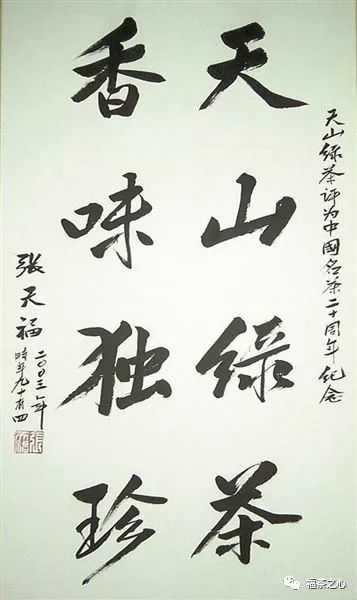 天山绿茶评为中國名茶二十周年纪念
天山绿茶
香味独珍
張天福
二00三年
時年九十有四
福茶之心